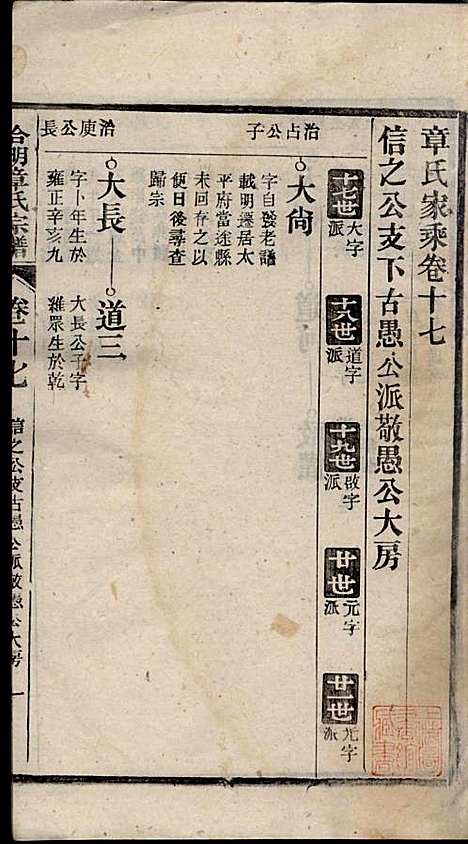 章氏家乘卷十七
信之公支下古愚公派敬愚公大房
十七世 大字派
十八世 道字派
十九世 啟字派
廿世 元字派
廿一世 允字派
治占公子
大尙
字自發老譜
載明遷居太
平府當塗縣
未回存之以
便日後尋查
歸宗
治庚公長
大長
字卜年生於
雍正辛亥九
道三
大長公子字
雜眾生於乾
合朗章氏宗譜
卷十七
信之公支古愚公派敬愚公大房
一